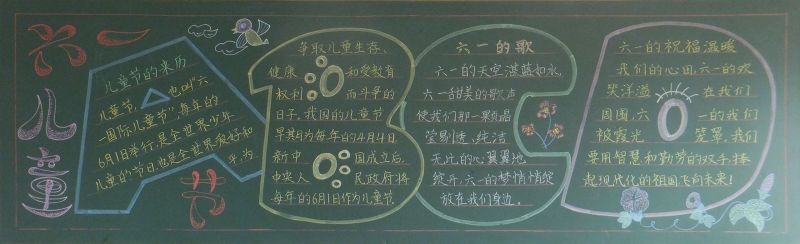 六一
儿童
节
儿童节的来历
儿童节,也叫“六
一国际儿童节”,每年的
6月1日举行,是全世界少年
儿童的节日,也是全世界爱好和
平,为
争取儿童生存、
健康 和受教育
权利 而斗争的
日子,我国的儿童节
早其月为每年的4月4日,
新中 国成立后,
中央人 民政府将
每年的6月1日作为儿童节
六一的歌
六一的天空湛蓝如水,
六一甜美的歌声
使我们那一颗颗晶
莹剔透、纯洁
无比的心翼翼地
绽开,六一的梦悄悄绽
放在我们身边。
六一的祝福温暖
我们的心田,六一的欢
笑洋溢 在我们
周围,六 一的我们
被霞光 笼罩,我们
要用智慧和勤劳的双手捧
起现代化的祖国飞向未来!